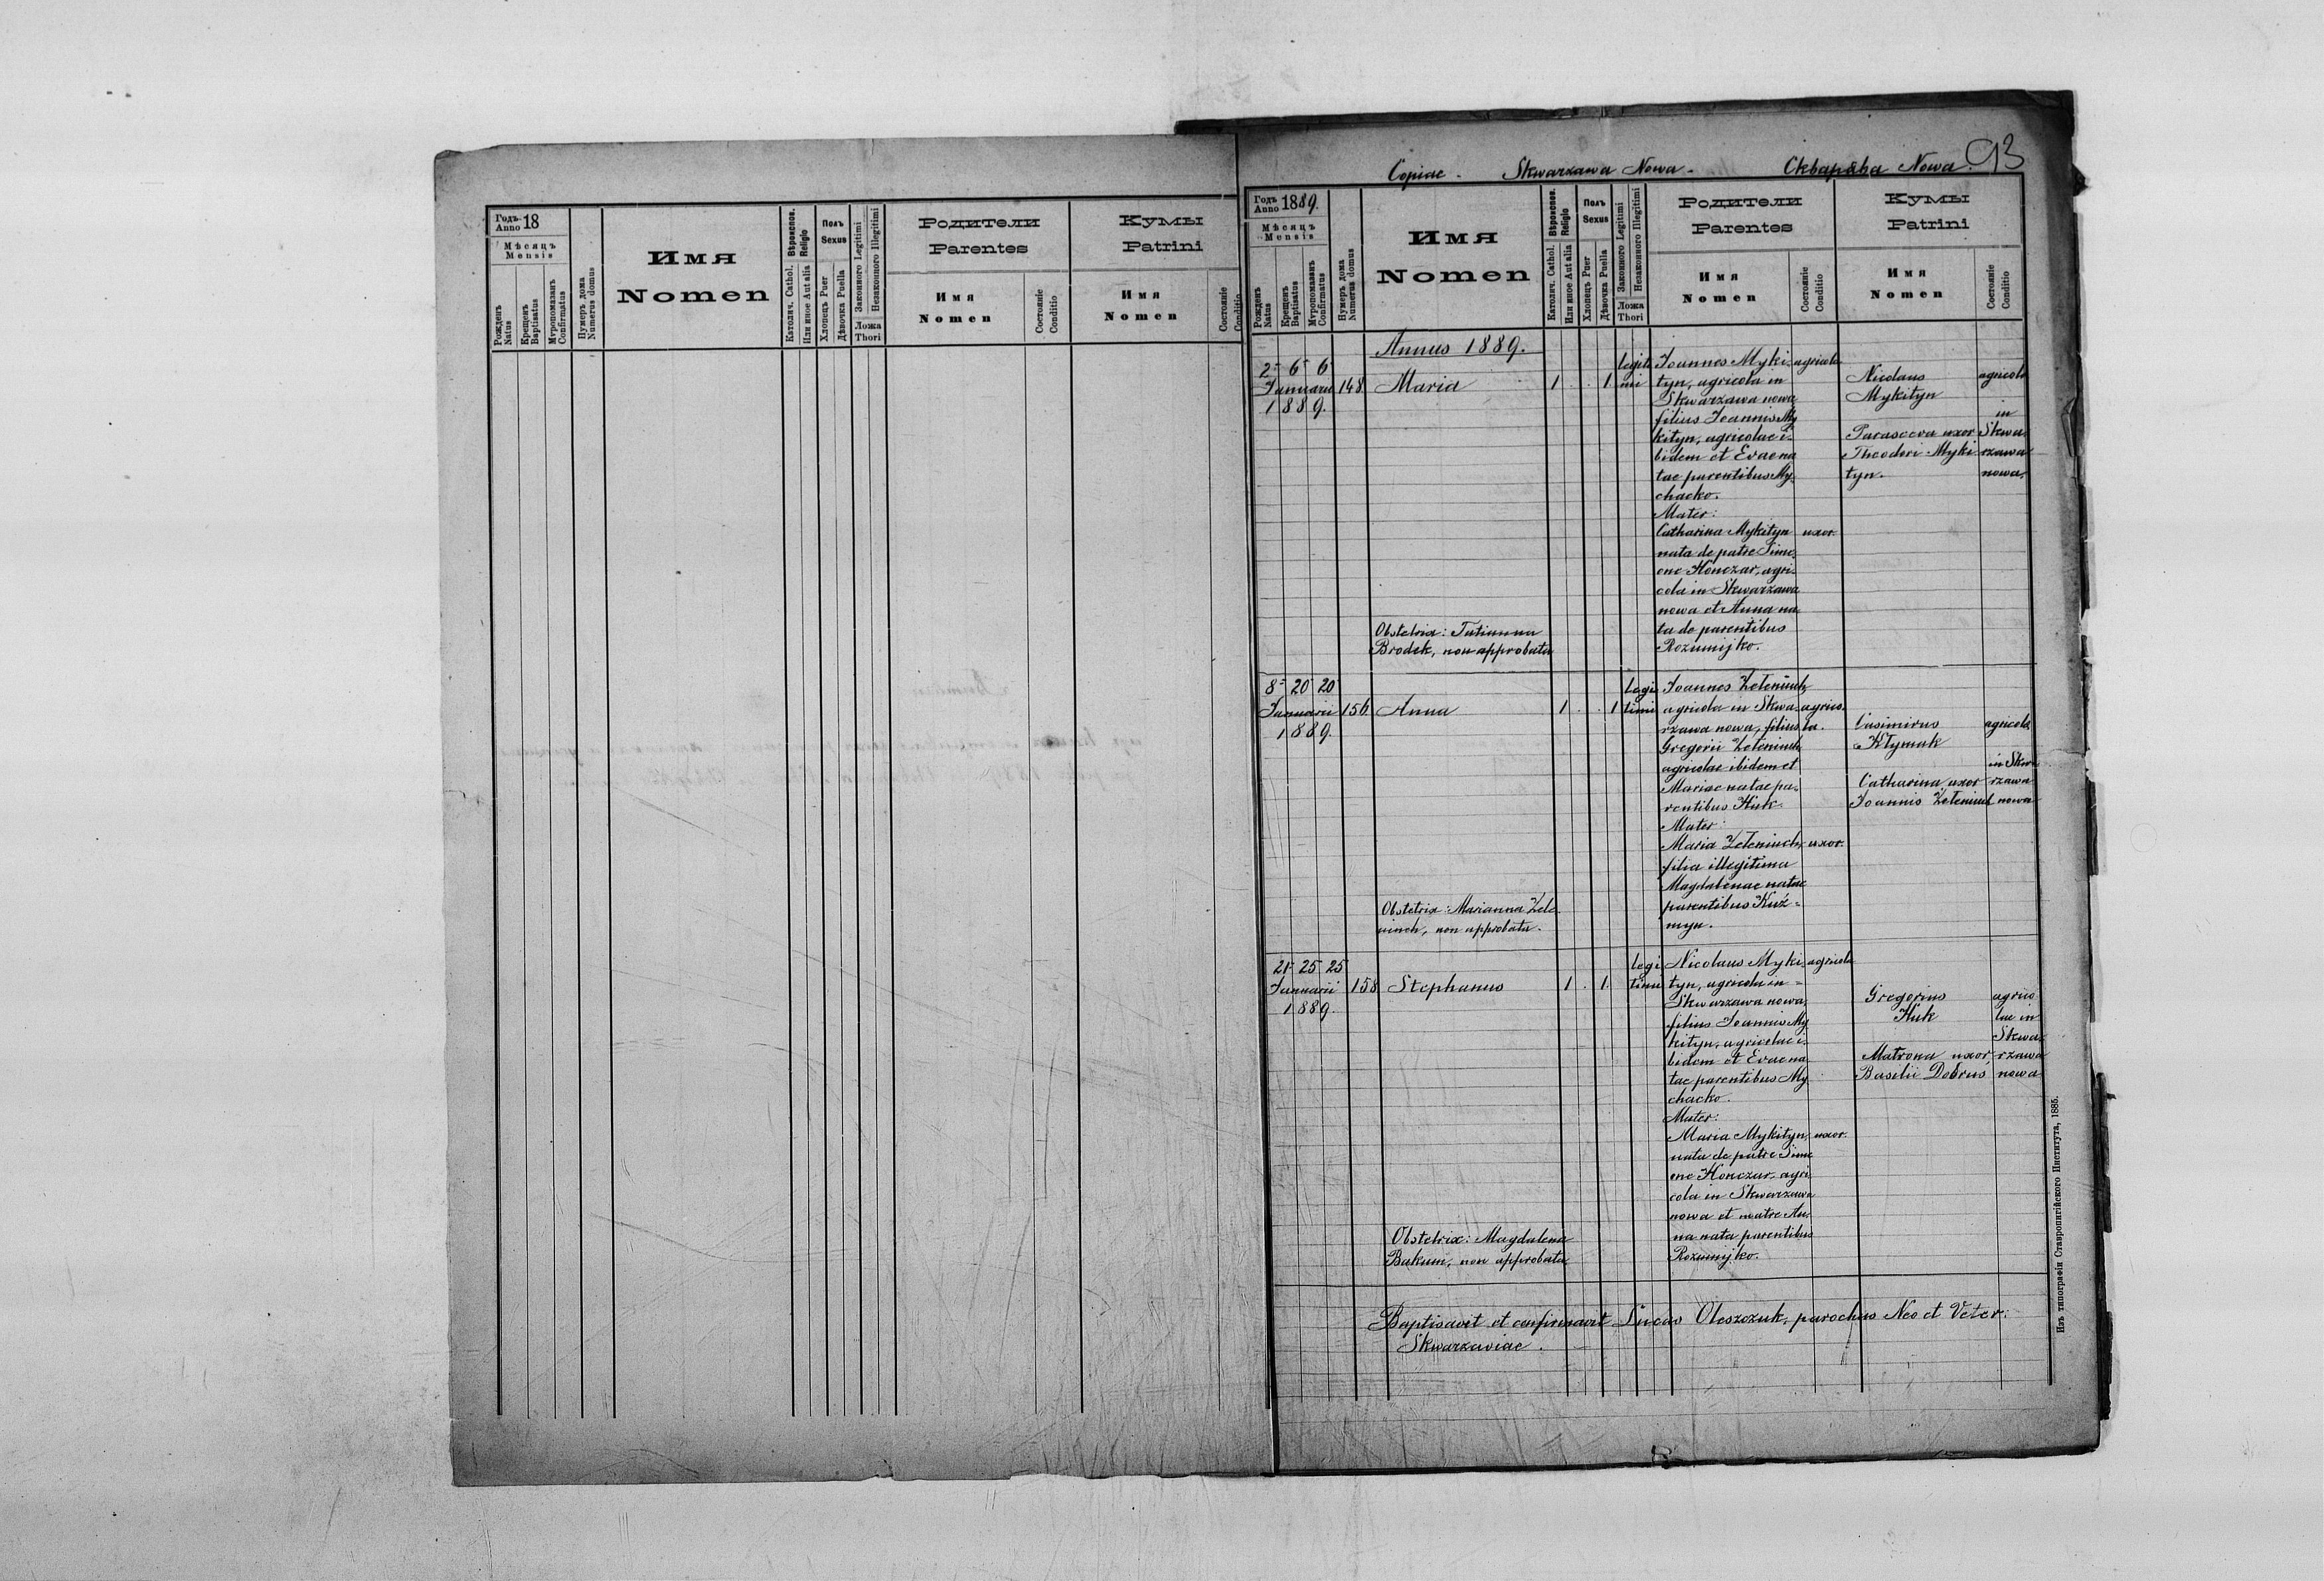 Годъ Anno 18
Мѣсяцъ
Mensis
Рожденъ Natus
Крещенъ Baptisatus
Мѵропомазанъ Confirmatus
Нумеръ дома Numerus domus
Имя
Nomen
Вѣроисповѣд. Religio
Католич. Cathol.
Или иное Aut alia
Полъ
Sexus
Хлопецъ Puer
Дѣвочка Puella
Законного Legitimi
Незаконного Illegitimi
Ложа
Thori
Родители
Parentes
Имя
Nomen
Состояніе Conditio
Кумы
Patrini
Имя
Nomen
Состояніе Conditio
93
Copiae. Skwarzawa Nowa. Скварява Nowa.
Годъ Anno 1889.
Мѣсяцъ
Mensis
Рожденъ Natus
Крещенъ Baptisatus
Мѵропомазанъ Confirmatus
Нумеръ дома Numerus domus
Имя
Nomen
Религіо Religio
Католич. Cathol.
Или иное Aut alia
Полъ
Sexus
Хлопецъ Puer
Дѣвочка Puella
Законного Legitimi
Незаконного Illegitimi
Ложа
Thori
Родители
Parentes
Имя
Nomen
Состояніе Conditio
Кумы
Patrini
Имя
Nomen
Состояніе Conditio
Annus 1889.
2 6 6
Januarii
1889.
148.
Maria
1 . . 1
legiti
mi
Joannes Myki-
tyn, agricola in
Skwarzawa nowa
filius Joannis My
kityn, agricolae i-
bidem et Evae na
tae parentibus My
chacko.
Mater:
Catharina Mykityn
nata de patre Sime-
one Honczar, agri-
cola in Skwarzawa
nowa et Anna na
ta de parentibus
Rozumijko.
agricola
uxor.
Nicolaus
Mykityn
Parasceva uxor
Theodori Myki
tyn.
agricola
in
Skwa
rzawa
nowa.
Obstetrix: Tatianna
Brodek, non approbata
8 20 20
Januarii
1889.
156.
Anna
1 . . 1
Legi
timi
Joannes Zeleniuch
agricola in Skwa-
rzawa nowa, filius
Gregorii Zeleniuch
agricolae ibidem et
Mariae natae pa-
rentibus Huk.
Mater:
Maria Zeleniuch,
filia illegitima
Magdalenae natae
parentibus Kuź-
myn.
agrico
la.
uxor.
Casimirus
Kłymak
Catharina uxor
Joannis Zeleniuch
agricola
in Skwa
rzawa
nowa
Obstetrix: Marianna Zele
niuch, non approbata.
21 25 25
Januarii
1889.
158
Stephanus
1 . 1
legi
timi
Nicolaus Myki-
tyn, agricola in
Skwarzawa nowa,
filius Joannis My
kityn, agricolae i-
bidem et Evae na
tae parentibus My
chacko.
Mater:
Maria Mykityn,
nata de patre Sime
one Honczar, agri
cola in Skwarzawa
nowa et matre An-
na nata parentibus
Rozumijko.
agricola
uxor.
Gregorius
Huk
Matrona uxor
Basilii Dobrus
agrico
lae in
Skwa-
rzawa
nowa
Obstetrix: Magdalena
Bakum, non approbata
Baptisavit et confirmavit Lucas Oleszczuk, parochus Neo et Veter.
Skwarzaviae.
Изъ типографіи Ставропигійского Института, 1885.